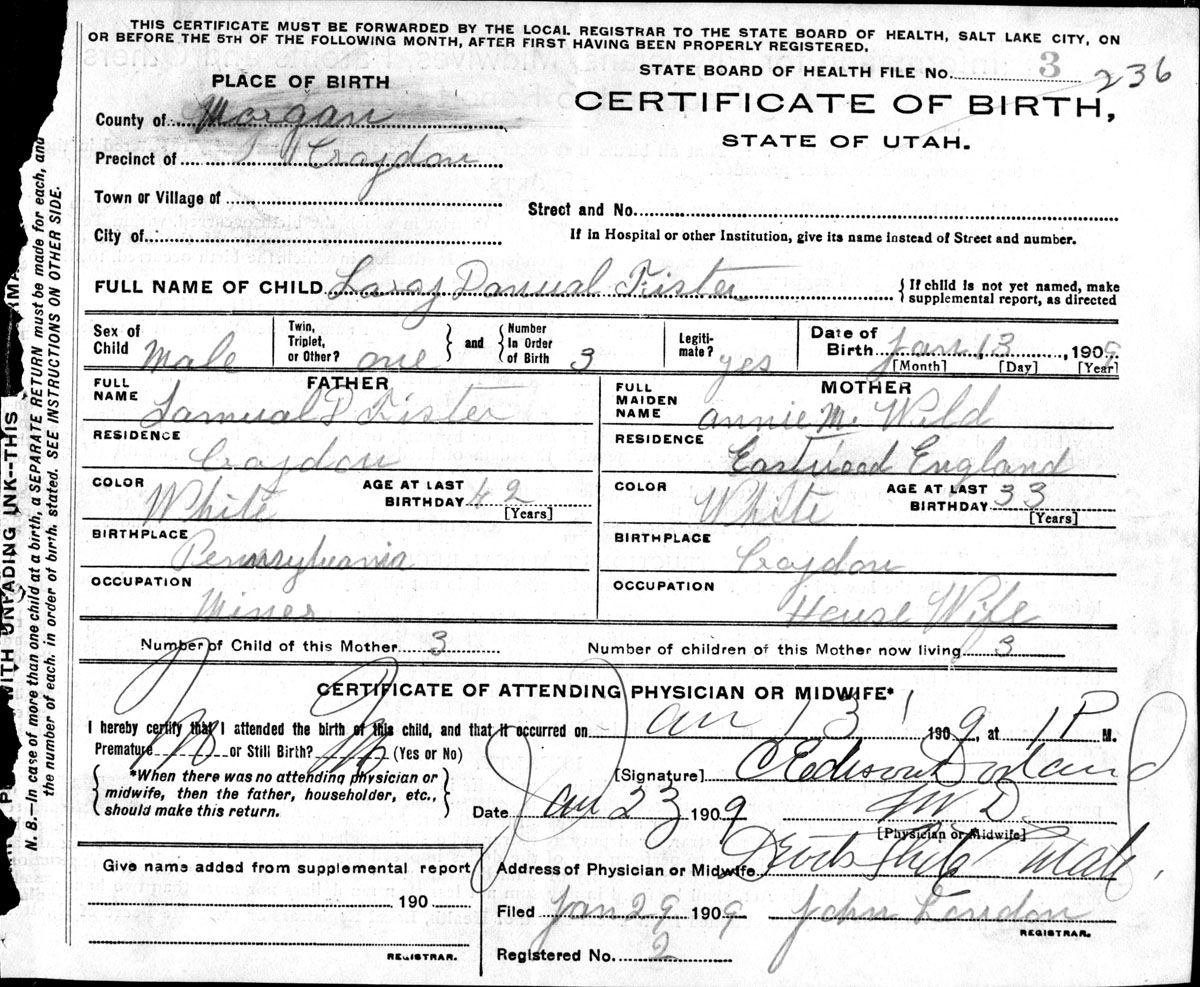 THIS CERTIFICATE MUST BE FORWARDED BY THE LOCAL REGISTRAR TO THE STATE BOARD OF HEALTH, SALT LAKE CITY, ON
OR BEFORE THE 5TH OF THE FOLLOWING MONTH, AFTER FIRST HAVING BEEN PROPERLY REGISTERED.
STATE BOARD OF HEALTH FILE NO. 3 236
PLACE OF BIRTH
CERTIFICATE OF BIRTH,
STATE OF UTAH.
County of Morgan
Precinct of Croydon
Town or Village of
Street and No.
City of
If in Hospital or other Institution, give its name instead of Street and number.
FULL NAME OF CHILD Laroy Danual Fister
{ If child is not yet named, make
supplemental report, as directed
Sex of Child Male
Twin, Triplet, or Other? one } and { Number In Order of Birth 3
Legiti-mate? yes
Date of Birth Jan 13, 1909
[Month] [Day] [Year]
FATHER
FULL NAME Samual D Fister
RESIDENCE Croydon
COLOR White
AGE AT LAST BIRTHDAY 42
[Years]
BIRTHPLACE Pennsylvania
OCCUPATION Miner
MOTHER
FULL MAIDEN NAME Annie M. Wild
RESIDENCE Eastwood England
COLOR White
AGE AT LAST BIRTHDAY 33
[Years]
BIRTHPLACE Croydon
OCCUPATION House Wife
Number of Child of this Mother 3
Number of children of this Mother now living 3
CERTIFICATE OF ATTENDING PHYSICIAN OR MIDWIFE*
I hereby certify that I attended the birth of this child, and that it occurred on Jan 13, 1909, at 1 P M.
Premature No or Still Birth? No (Yes or No)
{ *When there was no attending physician or
midwife, then the father, householder, etc.,
should make this return. }
[Signature]
M D
[Physician or Midwife]
Date Jan 23 1909
Address of Physician or Midwife Devils Slide Utah.
Give name added from supplemental report
190
REGISTRAR.
Filed Jan 29 1909 John London
REGISTRAR.
Registered No. 2
WITH UNFADING INK--THIS
N. B.--In case of more than one child at a birth, a SEPARATE RETURN must be made for each, and
the number of each, in order of birth, stated. SEE INSTRUCTIONS ON OTHER SIDE.